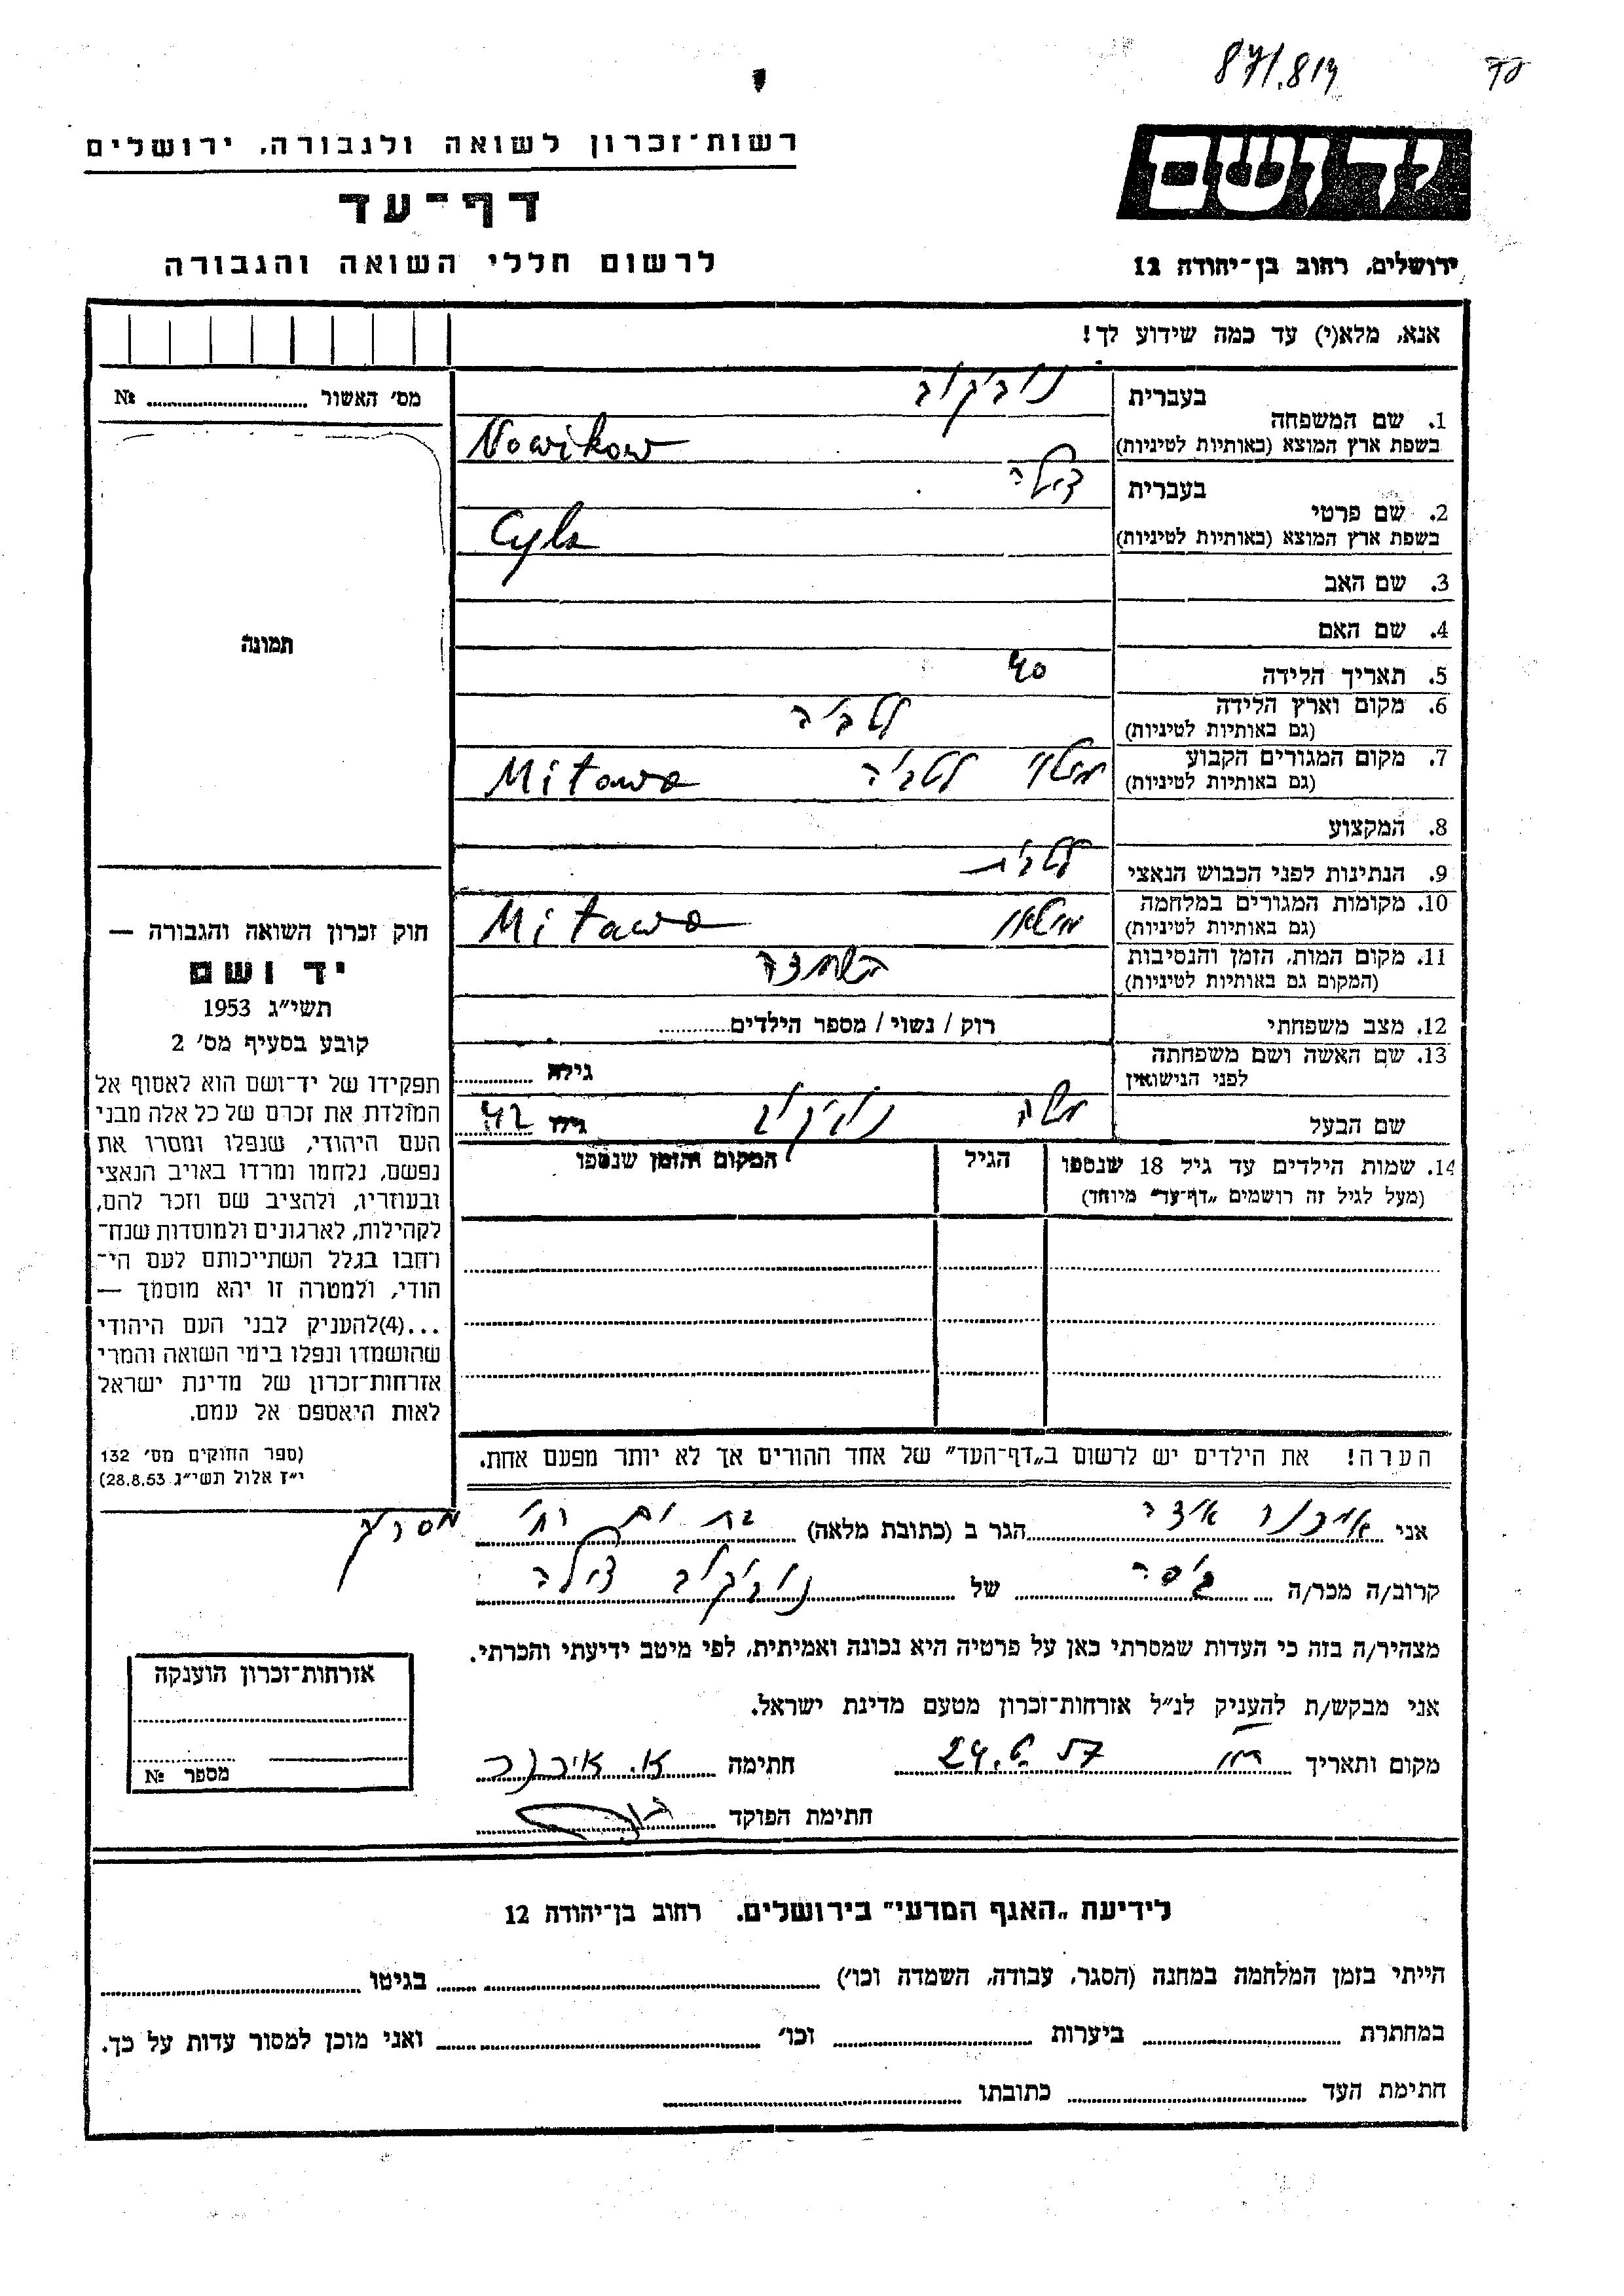 871.819
רשות־זכרון לשואה ולגבורה, ירושלים
דף־עד
לרשום חללי השואה והגבורה
יד ושם
ירושלים, רחוב בן־יהודה 12
אנא, מלא(י) עד כמה שידוע לך!
מס׳ האשור № 
1. שם המשפחה
בעברית נוביקוב
בשפת ארץ המוצא (באותיות לטיניות) Nowikow
2. שם פרטי
בעברית צילה
בשפת ארץ המוצא (באותיות לטיניות) Cyla
3. שם האב
4. שם האם
5. תאריך הלידה 40
6. מקום וארץ הלידה לטביה
(גם באותיות לטיניות)
7. מקום המגורים הקבוע לטביה Mitawa
(גם באותיות לטיניות)
8. המקצוע
9. הנתינות לפני הכבוש הנאצי לטבית
10. מקומות המגורים במלחמה Mitawa
(גם באותיות לטיניות)
11. מקום המות, הזמן והנסיבות הושמדה
(המקום גם באותיות לטיניות)
12. מצב משפחתי רוק / נשוי / מספר הילדים
13. שם האשה ושם משפחתה
לפני הנישואין גילה
שם הבעל משה נוביקוב גילו 42
14. שמות הילדים עד גיל 18 שנספו הגיל המקום והזמן שנספו
(מעל לגיל זה רושמים „דף־עד” מיוחד)
הערה! את הילדים יש לרשום ב„דף־העד” של אחד ההורים אך לא יותר מפעם אחת.
תמונה
חוק זכרון השואה והגבורה —
יד ושם
תשי״ג 1953
קובע בסעיף מס׳ 2
תפקידו של יד־ושם הוא לאסוף אל
המולדת את זכרם של כל אלה מבני
העם היהודי, שנפלו ומסרו את
נפשם, נלחמו ומרדו באויב הנאצי
ובעוזריו, ולהציב שם וזכר להם,
לקהילות, לארגונים ולמוסדות שנח־
רחבו בגלל השתייכותם לעם הי־
הודי, ולמטרה זו יהא מוסמך —
...(4)להעניק לבני העם היהודי
שהושמדו ונפלו בימי השואה והמרי
אזרחות־זכרון של מדינת ישראל
לאות היאספם אל עמם.
(ספר החוקים מס׳ 132
י״ז אלול תשי״ג 28.8.53)
אני הגר ב (כתובת מלאה) בת ים
קרוב/ה מכר/ה גיסה של נוביקוב צילה
מצהיר/ה בזה כי העדות שמסרתי כאן על פרטיה היא נכונה ואמיתית, לפי מיטב ידיעתי והכרתי.
אני מבקש/ת להעניק לנ״ל אזרחות־זכרון מטעם מדינת ישראל.
מקום ותאריך 24.6.57 חתימה
חתימת הפוקד
אזרחות־זכרון הוענקה
מספר №
לידיעת „האגף המדעי” בירושלים, רחוב בן־יהודה 12
הייתי בזמן המלחמה במחנה (הסגר, עבודה, השמדה וכו׳) בגיטו
במחתרת ביערות וכו׳ ואני מוכן למסור עדות על כך.
חתימת העד כתובתו